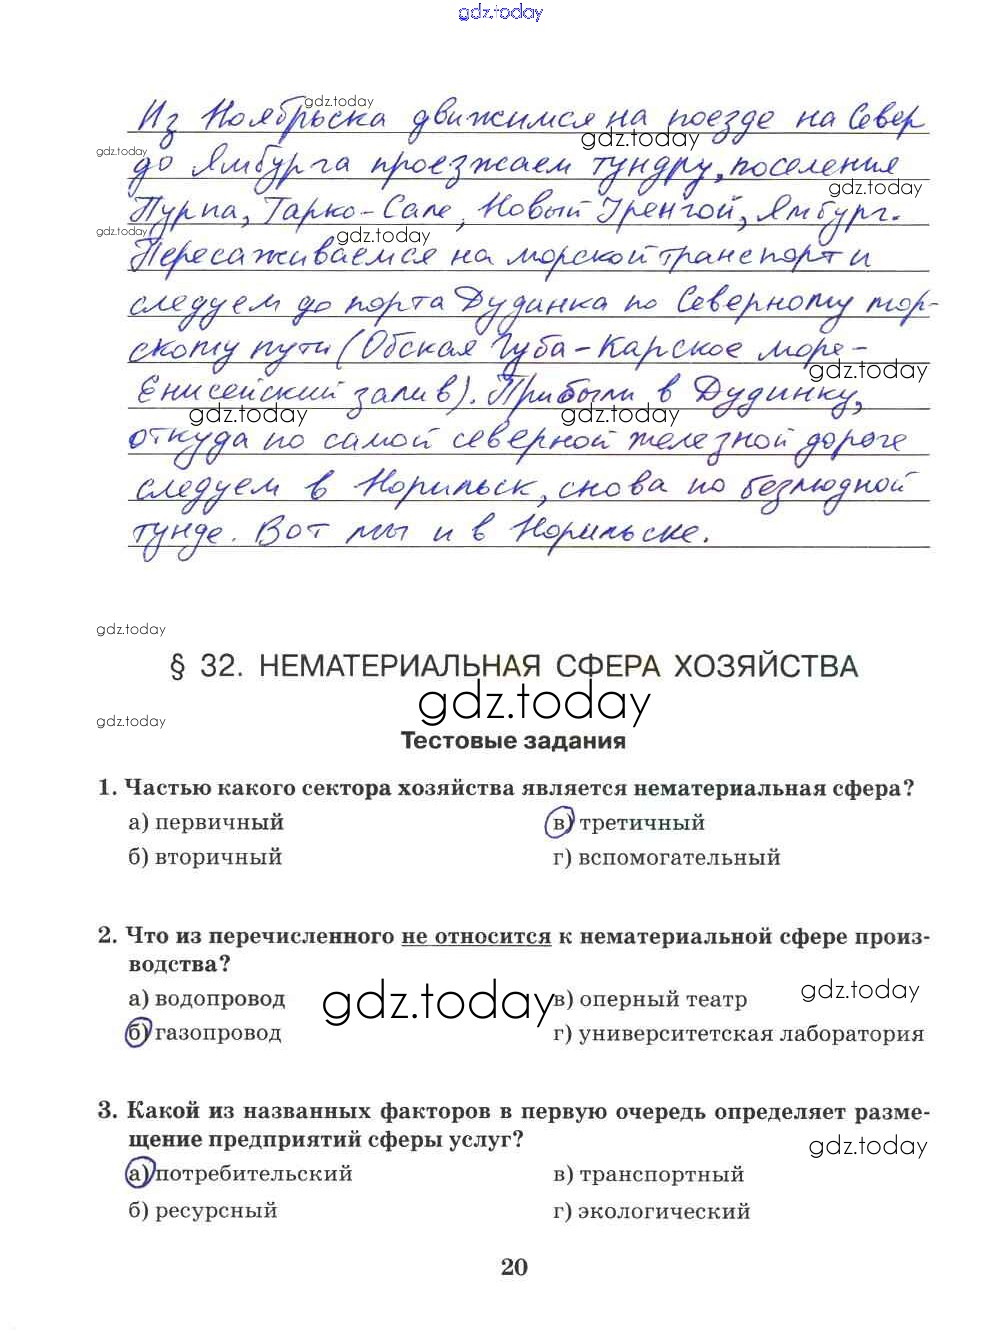 gdz.today
Из Ноябрьска движимся на поезде на Север
gdz.today
gdz.today
до Ямбурга проезжаем тундру, поселения
gdz.today
gdz.today
Пурпа, Тарко-Сале, Новый Уренгой, Ямбург.
gdz.today
gdz.today
Пересаживаемся на морской транспорт и
следуем до порта Дудинка по Северному мор-
скому пути (Обская Губа-Карское море-
gdz.today
Енисейский залив). Прибыли в Дудинку,
gdz.today gdz.today
откуда по самой северной железной дороге
следуем в Норильск, снова по безлюдной
тунде. Вот мы и в Норильске.
gdz.today
§ 32. НЕМАТЕРИАЛЬНАЯ СФЕРА ХОЗЯЙСТВА
gdz.today
gdz.today
Тестовые задания
1. Частью какого сектора хозяйства является нематериальная сфера?
а) первичный в) третичный
б) вторичный г) вспомогательный
2. Что из перечисленного не относится к нематериальной сфере произ-
водства?
а) водопровод в) оперный театр
gdz.today gdz.today
б) газопровод г) университетская лаборатория
3. Какой из названных факторов в первую очередь определяет разме-
щение предприятий сферы услуг?
gdz.today
а) потребительский в) транспортный
б) ресурсный г) экологический
20